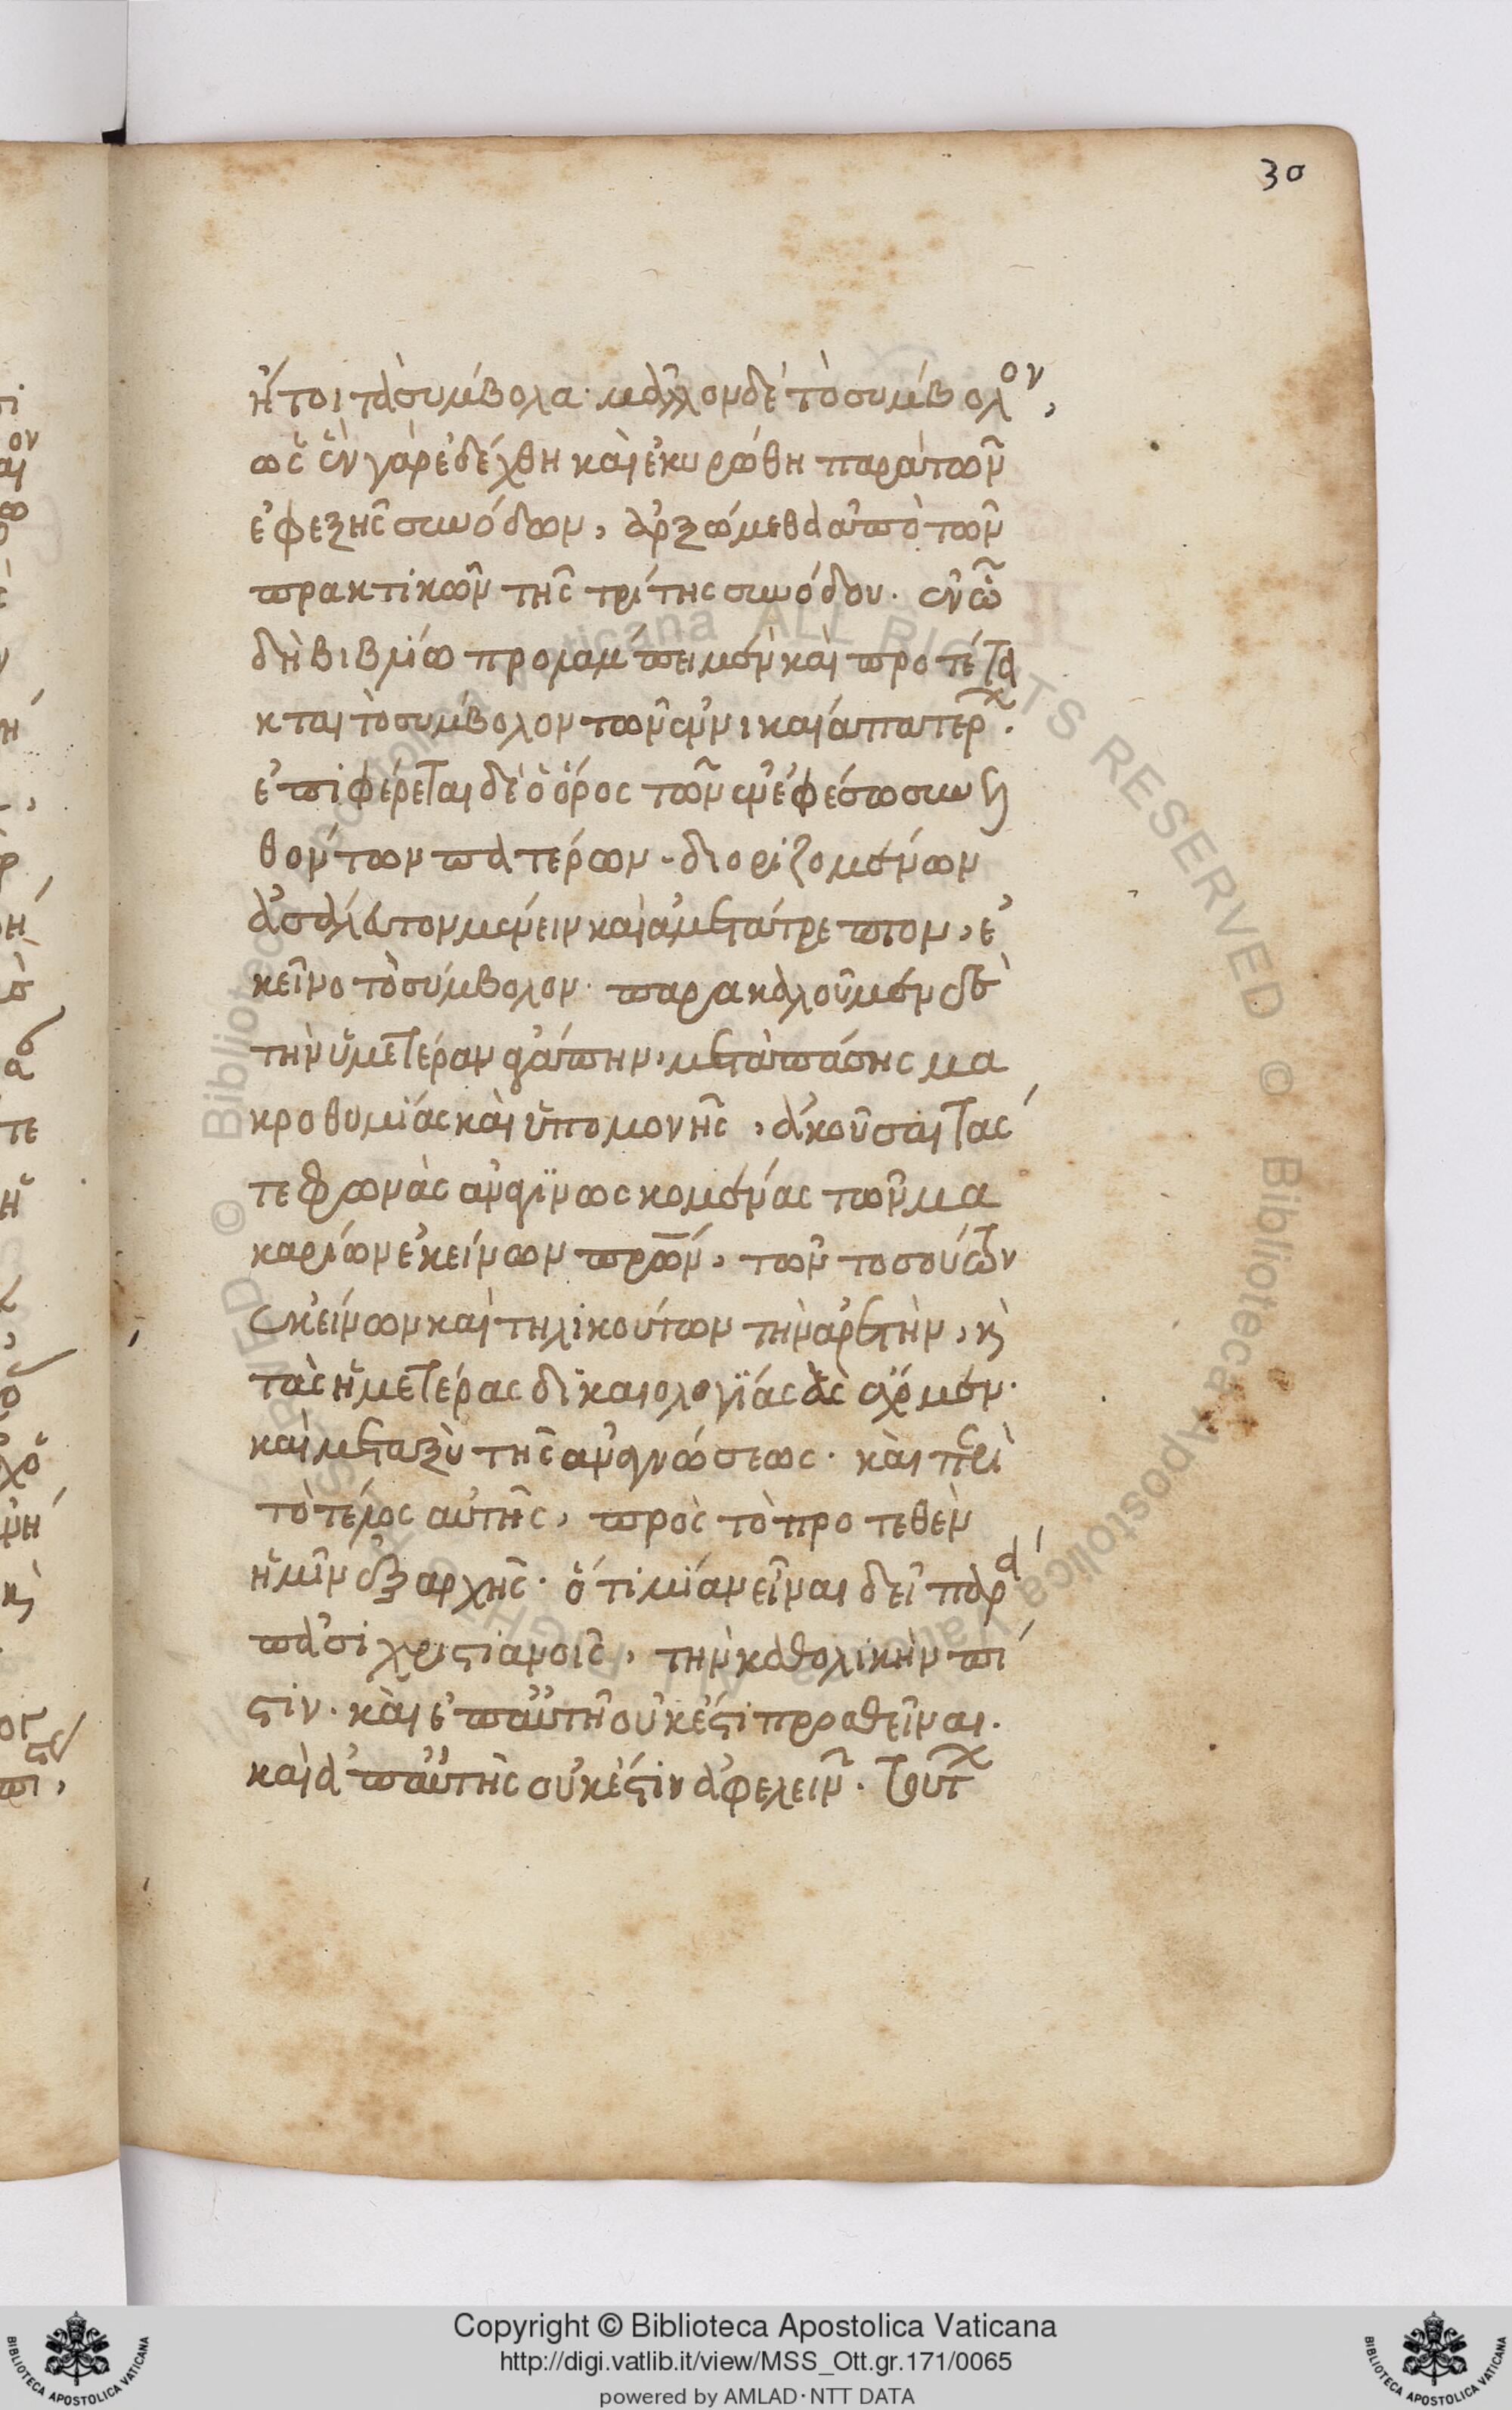 30
ἤτοι τὰ σύμβολα· μᾶλλον δὲ τὸ σύμβολον,
ὡς ἓν γὰρ ἐδέχθη καὶ ἐκυρώθη παρὰ τῶν
ἐφεξῆς συνόδων, ἀρξώμεθα ἀπὸ τῶν
πρακτικῶν τῆς τρίτης συνόδου. ἐν ὧ
δὴ βιβλίω προλάμπει μὲν καὶ προτέτα
κται τὸ σύμβολον τῶν ἐν νικαία πατέρ.
ἐπιφέρεται δὲ ὁ ὅρος τῶν ἐν ἐφέσω συνελ
θόντων πατέρων· διοριζομένων
ἀσάλευτον μένειν καὶ ἀμετάτρεπτον, ἐ
κεῖνο τὸ σύμβολον· παρακαλοῦμεν δὲ
τὴν ὑμετέραν ἀγάπην, μετὰ πάσης μα
κροθυμίας καὶ ὑπομονῆς, ἀκοῦσαι τάς
τε φωνὰς ἀναγινωσκομένας τῶν μα
καρίων ἐκείνων πρων, τῶν τοσούτων
ἐκείνων καὶ τηλικούτων τὴν ἀρετὴν, κ
τὰς ἡμετέρας δικαιολογίας ἃς ἐροῦμεν·
καὶ μεταξὺ τῆς ἀναγνώσεως. καὶ περὶ
τὸ τέλος αὐτῆς, πρὸς τὸ προτεθὲν
ἡμῖν ἐξ ἀρχῆς. ὅτι μίαν εἶναι δεῖ παρὰ
πᾶσι χριστιανοῖς, τὴν καθολικὴν πί
στιν. καὶ ἐπ αὐτῆ οὐκ ἔστι προσθεῖναι.
καὶ ἀπ αὐτῆς οὐκ ἔστιν ἀφελεῖν.
Copyright © Biblioteca Apostolica Vaticana
http://digi.vatlib.it/view/MSS_Ott.gr.171/0065
powered by AMLAD·NTT DATA